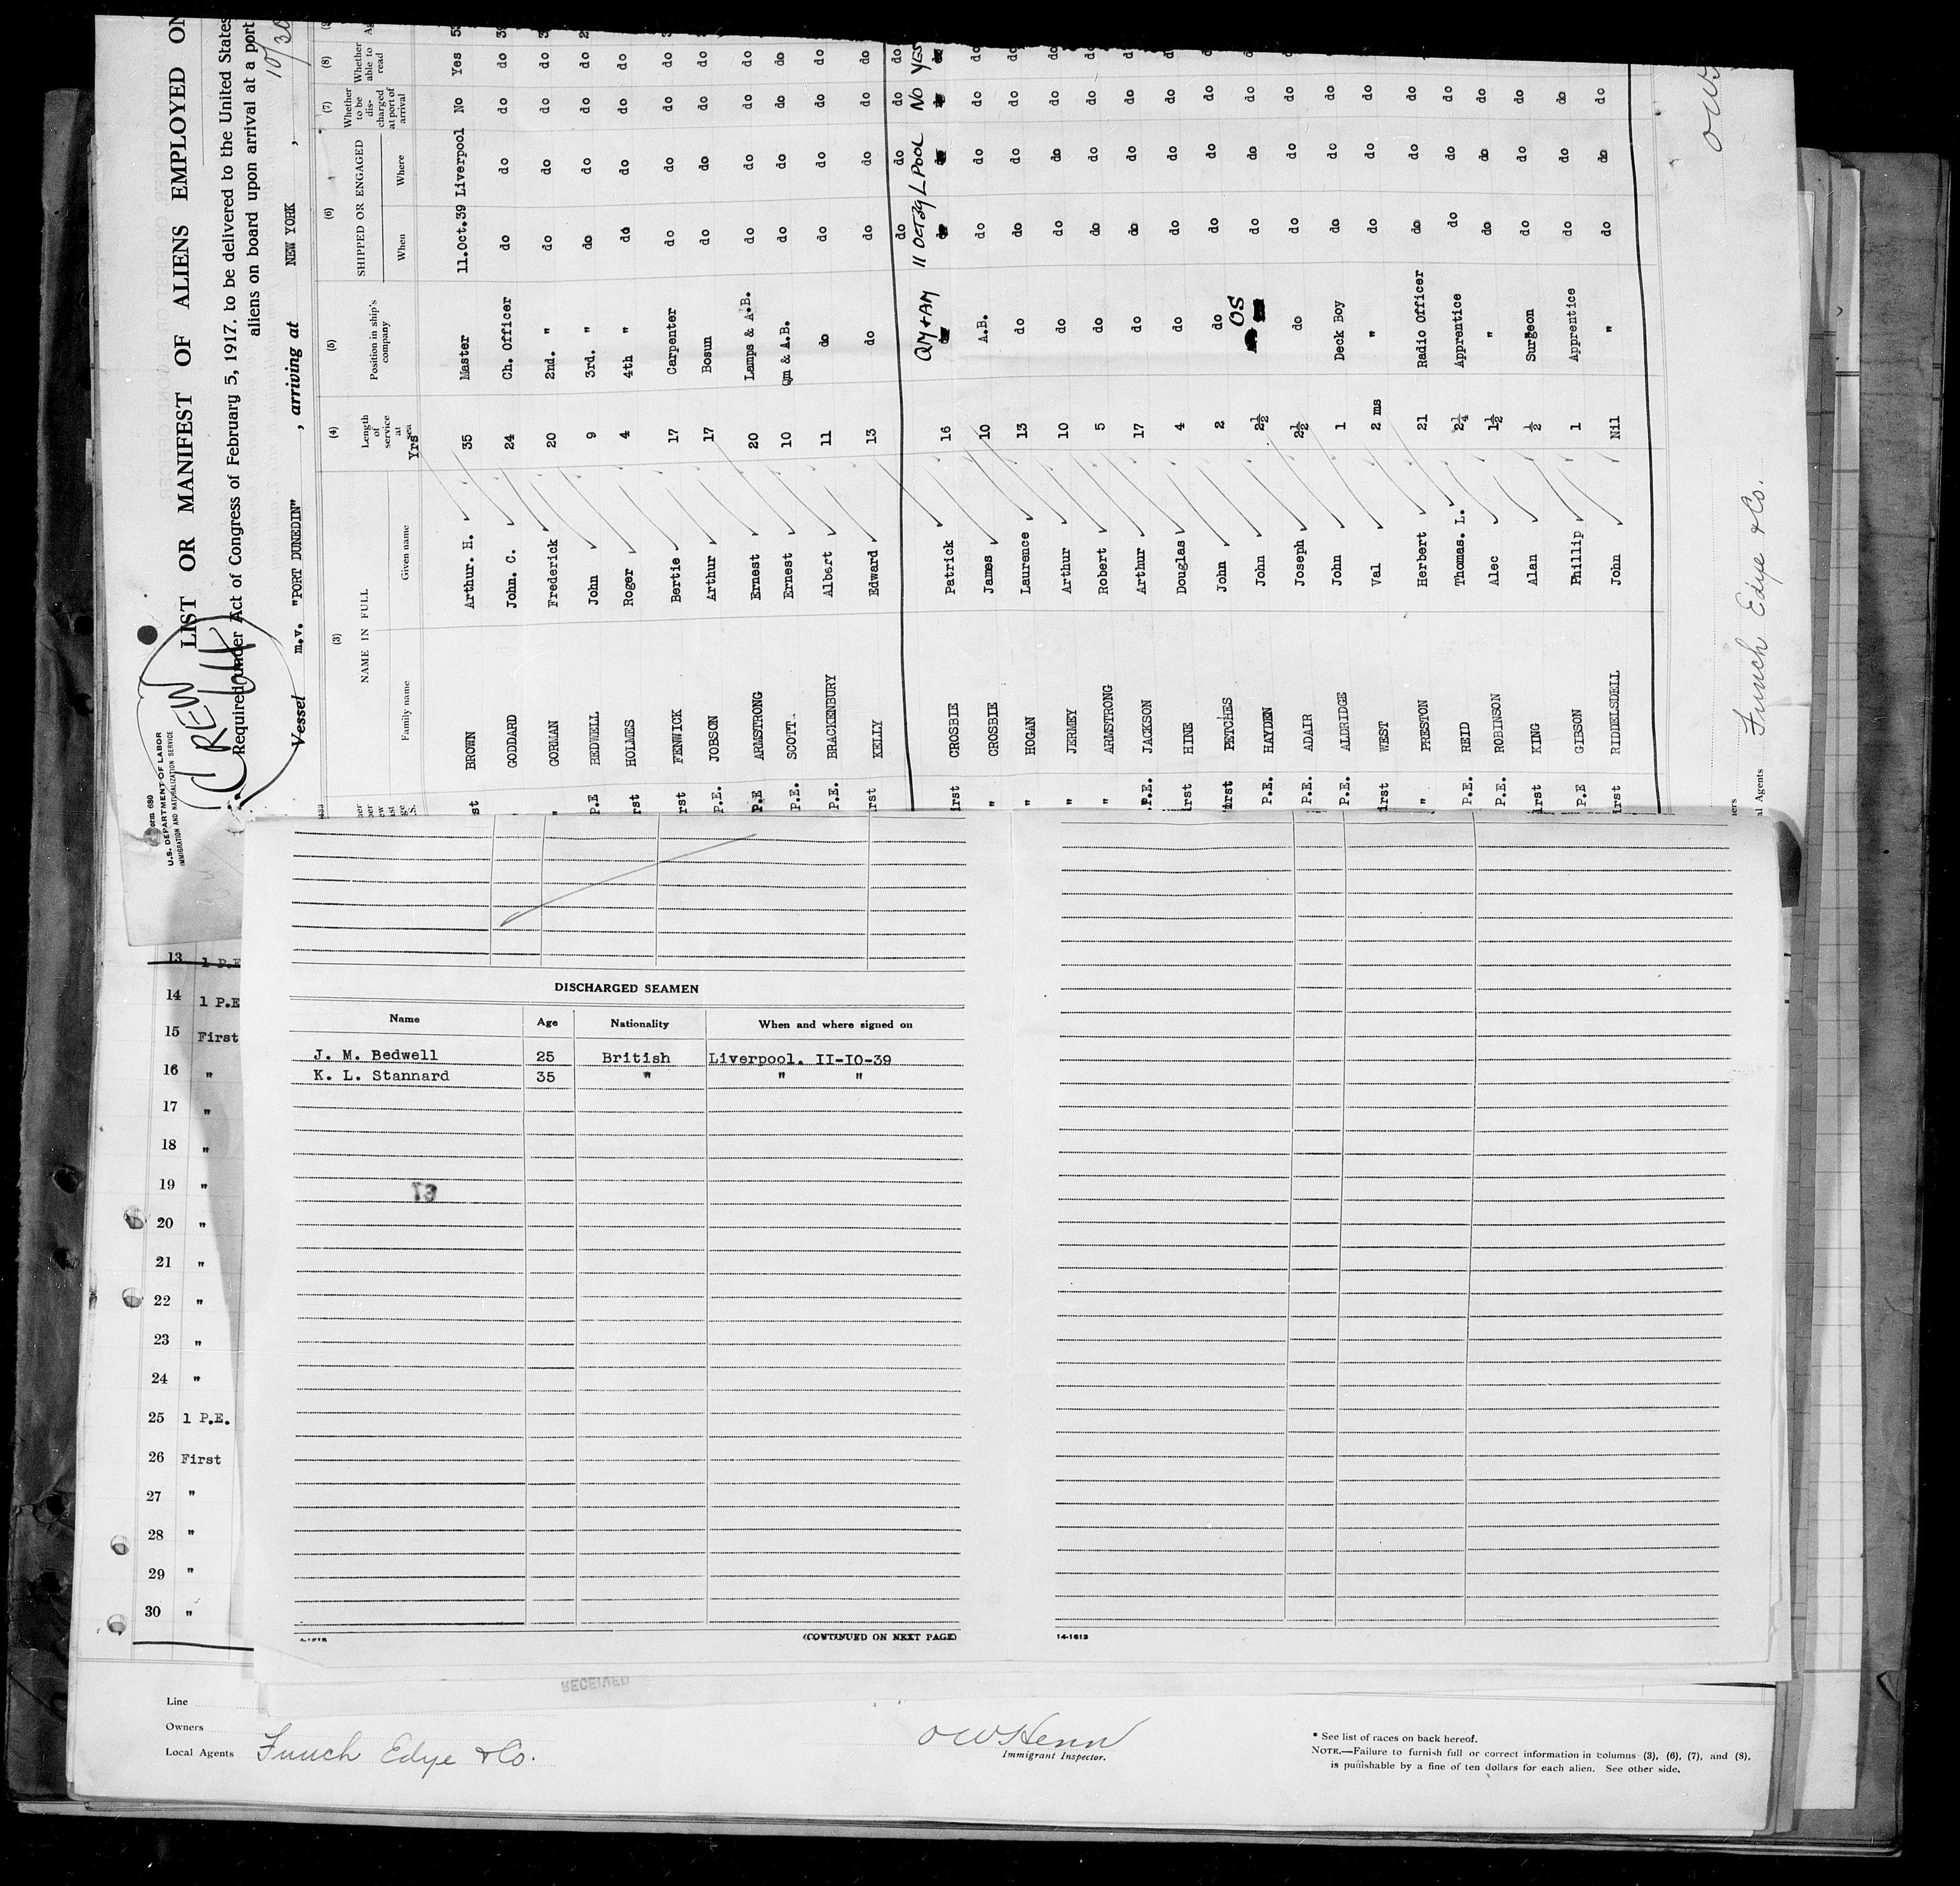 Form 680
U.S. DEPARTMENT OF LABOR
IMMIGRATION AND NATURALIZATION SERVICE
CREW
LIST OR MANIFEST OF ALIENS EMPLOYED ON
Required under Act of Congress of February 5, 1917, to be delivered to the United States
aliens on board upon arrival at a port
Vessel m.v. "PORT DUNEDIN", arriving at NEW YORK, 10/30
(3) (4) (5) (6) (7) (8)
NAME IN FULL Length of service at sea Position in ship's company SHIPPED OR ENGAGED Whether to be discharged at port of arrival Whether able to read
Family name Given name Yrs When Where
BROWN Arthur. H. 35 Master 11.Oct.39 Liverpool No Yes
GODDARD John. C. 24 Ch. Officer do do do do
" GORMAN Frederick 20 2nd. " do do do do
P.E BEDWELL John 9 3rd. " do do do do
HOLMES Roger 4 4th " do do do do
FENWICK Bertie 17 Carpenter do do do do
P.E. JOBSON Arthur 17 Bosun do do do do
P.E ARMSTRONG Ernest 20 Lamps & A.B. do do do do
P.E. SCOTT. Ernest 10 Qm & A.B. do do do do
P.E. BRACKENBURY Albert 11 do do do do do
KELLY Edward 13 do do do do do
do do do do
CROSBIE Patrick 16 QM + AM 11 OCT 39 L POOL NO YES
" CROSBIE James 10 A.B. do do do do
" HOGAN Laurence 13 do do do do do
" JERMEY Arthur 10 do do do do do
" ARMSTRONG Robert 5 do do do do do
P.E. JACKSON Arthur 17 do do do do do
HINE Douglas 4 do do do do
PETCHES John 2 do do do do
P.E. HAYDEN John 2½ OS do do do
P.E. ADAIR Joseph 2½ do do do do
P.E. ALDRIDGE John 1 Deck Boy do do do
WEST Val 2 ms " do do do
" PRESTON Herbert 21 Radio Officer do do do
P.E. REID Thomas. L. 2¼ Apprentice do do do
P.E. ROBINSON Alec 1½ " do do do
KING Alan ½ Surgeon do do do
P.E GIBSON Phillip 1 Apprentice do do do
RIDDELSDELL John Nil " do do do
Funch Edye & Co.
DISCHARGED SEAMEN
Name Age Nationality When and where signed on
J. M. Bedwell 25 British Liverpool. II-IO-39
K. L. Stannard 35 " " "
(CONTINUED ON NEXT PAGE)
14-1613
13 1 P.E
14 1 P.E
15 First
16 "
17 "
18 "
19 "
20 "
21 "
22 "
23 "
24 "
25 1 P.E.
26 First
27 "
28 "
29 "
30 "
RECEIVED
Line
Owners
Local Agents Funch Edye & Co.
O W Henn
Immigrant Inspector.
* See list of races on back hereof.
NOTE.—Failure to furnish full or correct information in columns (3), (6), (7), and (8),
is punishable by a fine of ten dollars for each alien. See other side.